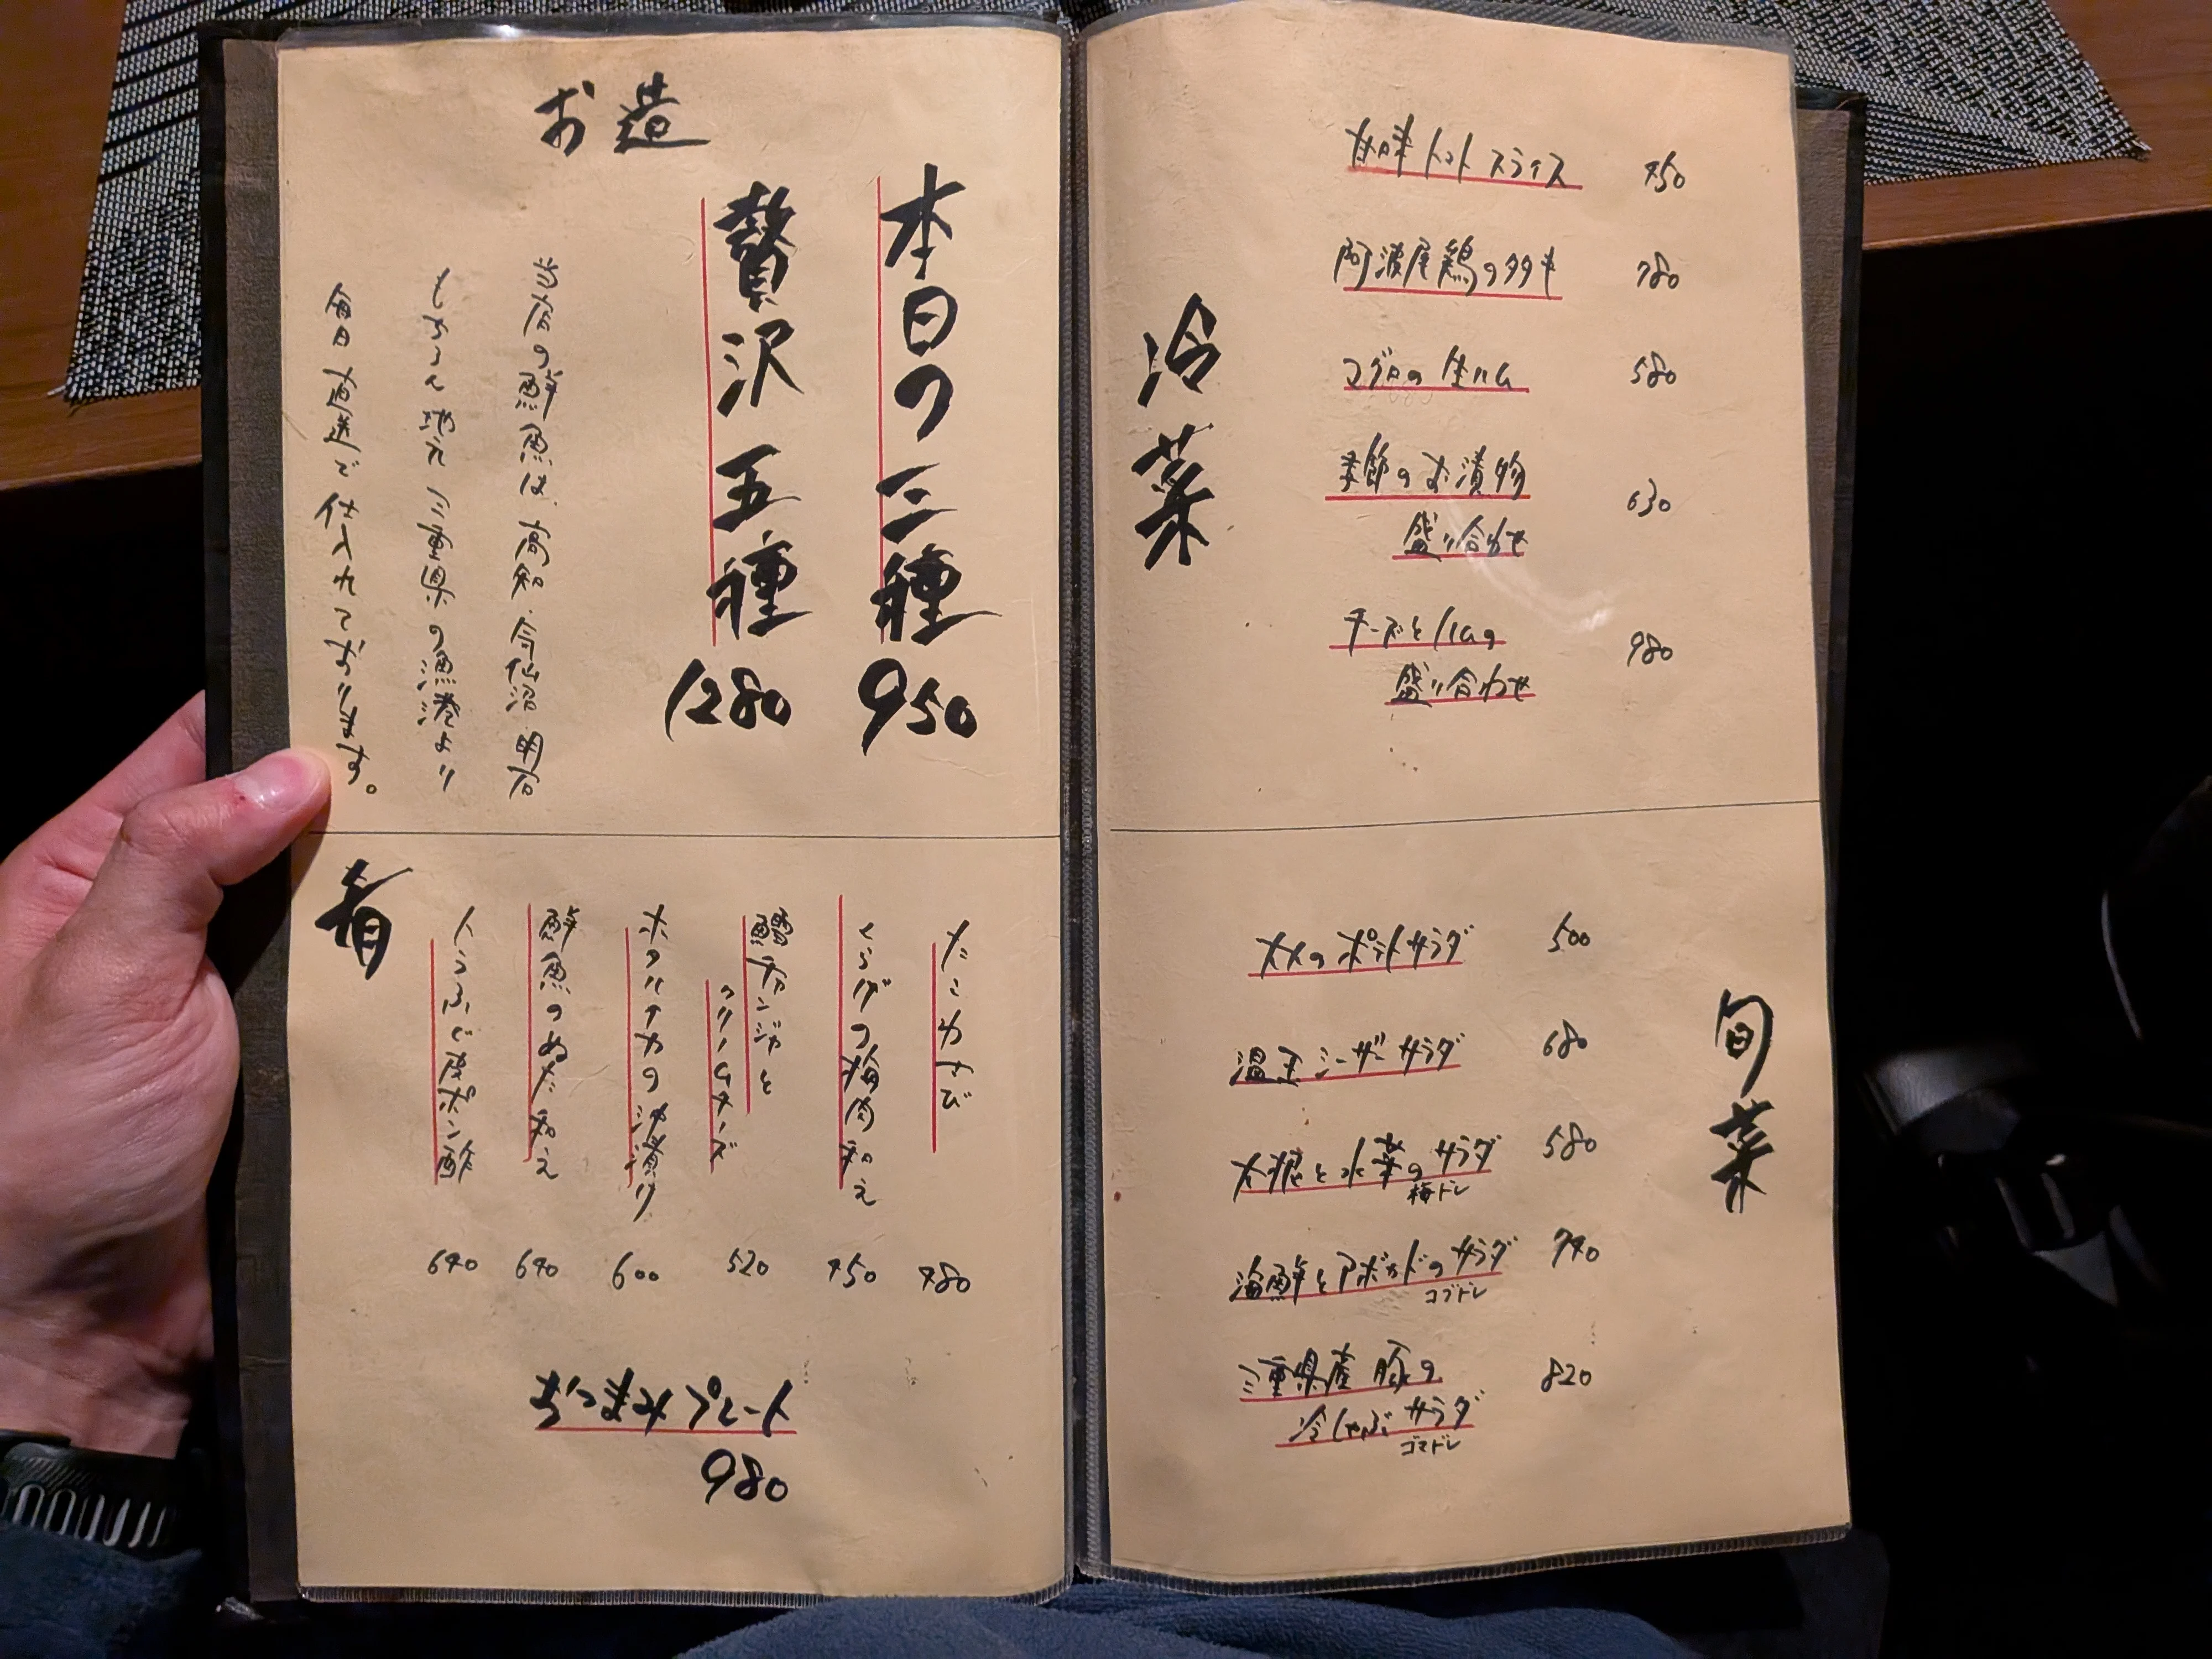 お造
本日の三種
950
贅沢五種
1280
当店の鮮魚は、高知、今仙沼、明石
もちろん地元三重県の漁港より
毎日直送で仕入れております。
肴
たこわさび
480
くらげの梅肉和え
450
鱈チャンジャと
クリームチーズ
520
ホタルイカの沖漬け
600
鮮魚のぬた和え
640
とらふぐ皮ポン酢
640
おつまみプレート
980
冷菜
トマトスライス
450
阿波尾鶏のタタキ
780
マグロの生ハム
580
季節のお漬物
盛り合わせ
630
チーズとハムの
盛り合わせ
980
旬菜
のポテトサラダ
500
温玉シーザーサラダ
680
大根と水菜のサラダ
梅ドレ
580
海鮮とアボカドのサラダ
コブドレ
740
三重県産豚の
冷しゃぶサラダ
ゴマドレ
820